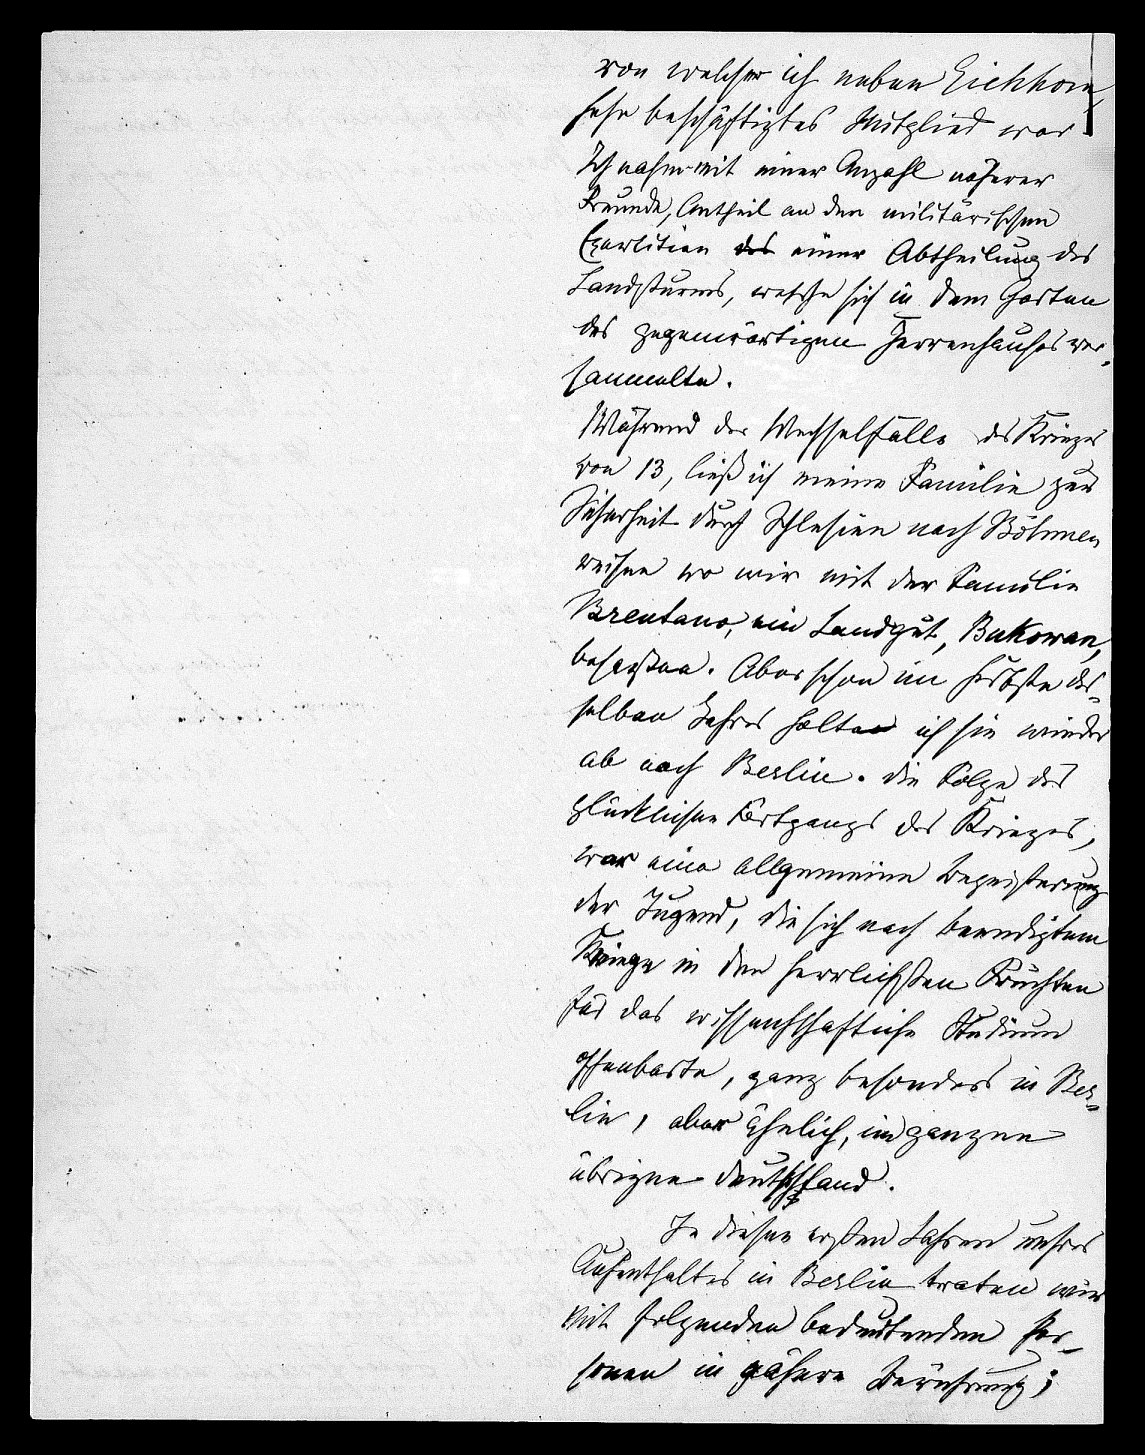 von welcher ich neben Eichhorn,
sehr beschäftigtes Mitglied war
Ich nahm mit einer Anzahl näherer
Freunde, Antheil an den militärischen
Exercitien des einer Abtheilung des
Landsturms, welche sich in dem Garten
des gegenwärtigen Herrenhauses ver-
sammelte.
Während der Wechselfälle des Krieges
von 13, ließ ich meine Familie zur
Sicherheit durch Schlesien nach Böhmen
reisen wo wir mit der Familie
Brentano, ein Landgut, Bukowan,
besaßen. Aber schon im Herbste des-
selben Jahres holte ich sie wieder
ab nach Berlin. Die Folge des
glücklichen Fortgangs des Krieges,
war eine allgemeine Begeisterung
der Jugend, die sich nach beendigtem
Kriege in den herrlichsten Früchten
für das wissenschaftliche Studium
offenbarte, ganz besonders in Ber-
lin, aber ähnlich, im ganzen
übrigen Deutschland.
In diesen ersten Jahren unsres
Aufenthaltes in Berlin traten wir
mit folgenden bedeutenden Per-
sonen in nähere Berührung;